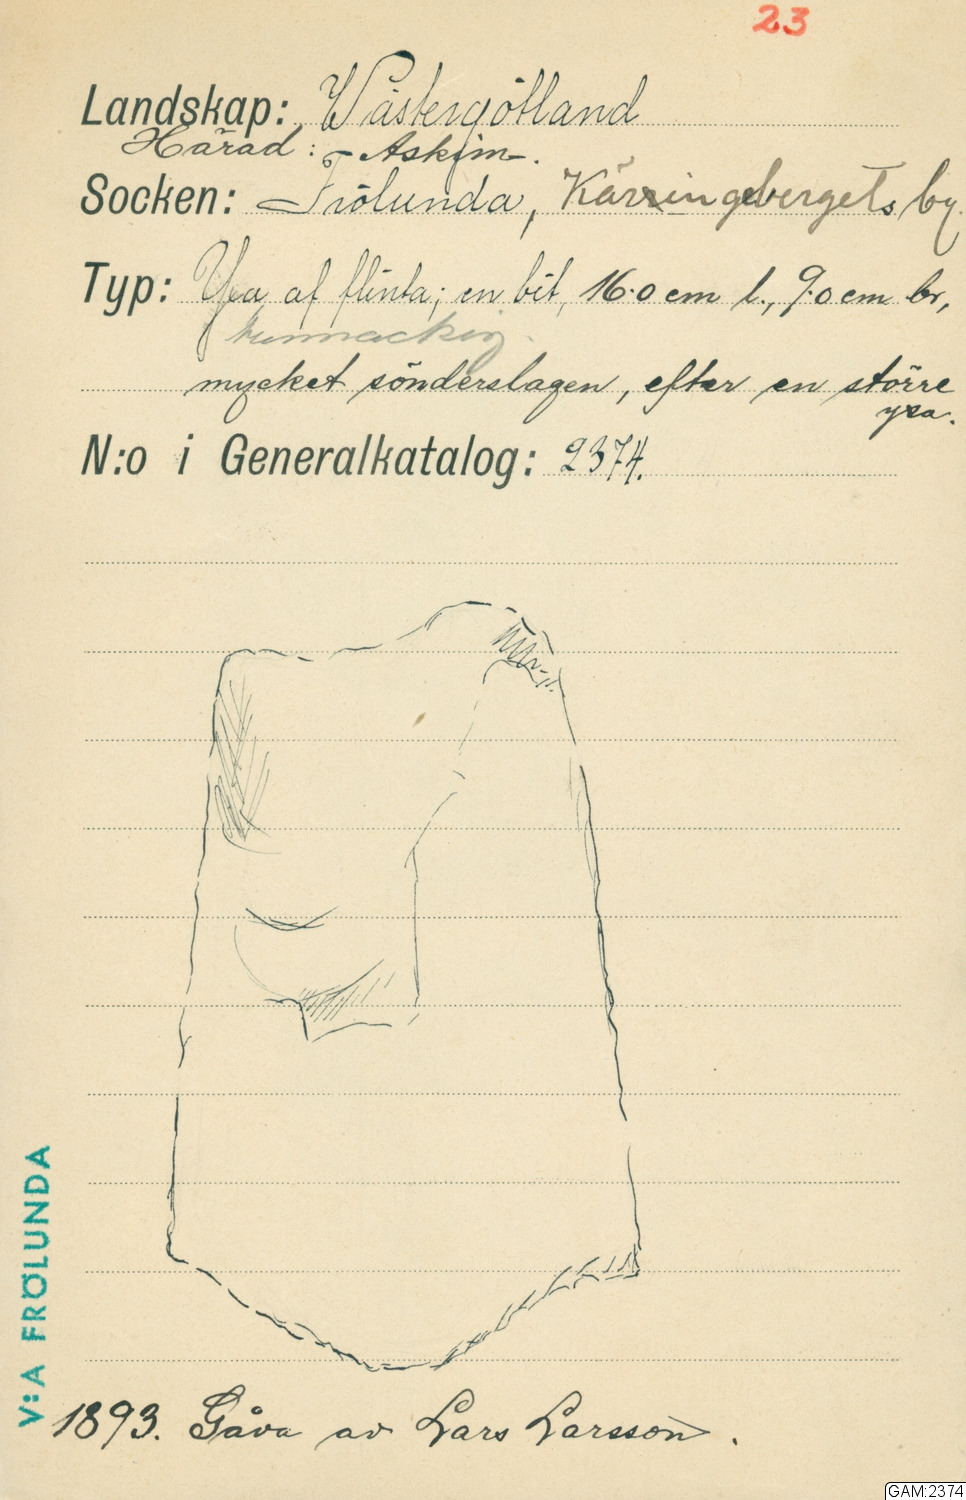 23
Landskap: Wästergötland
Härad: Askim.
Socken: Frölunda, Kärringebergets by.
Typ: Yxa af flinta; en bit, 16.0 cm l., 9.0 cm br,
tunnackig.
mycket sönderslagen, efter en större
yxa.
N:o i Generalkatalog: 2374.
V:A FRÖLUNDA
1893. Gåva av Lars Larsson.
GAM:2374